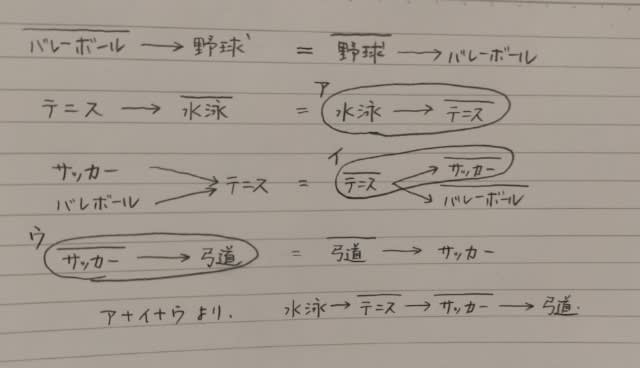 バレーボール → 野球 = 野球 → バレーボール
ア
テニス → 水泳 = 水泳 → テニス
サッカー
バレボール → テニス = テニス → サッカー
イ
バレーボール
ウ
サッカー → 弓道 = 弓道 → サッカー
ア+イ+ウより. 水泳→テニス→サッカー→弓道.